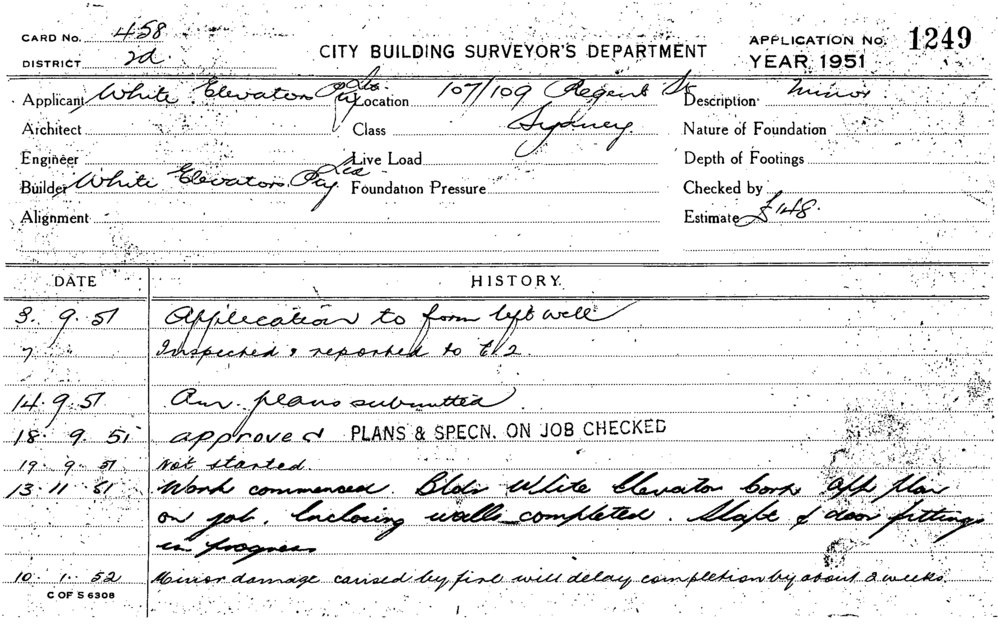 CARD No. 458
DISTRICT 2d
CITY BUILDING SURVEYOR'S DEPARTMENT
APPLICATION No. 1249
YEAR 1951
Applicant White Elevators Pty Ltd Location 107/109 Regent St Description Minor
Architect Class Sydney Nature of Foundation
Engineer Live Load Depth of Footings
Builder White Elevators Pty Ltd Foundation Pressure Checked by
Alignment Estimate £148.
DATE HISTORY.
3. 9. 51 Application to form lift well
7 Inspected & reported to
14. 9. 51 Am. plans submitted
18. 9. 51 approved PLANS & SPECN. ON JOB CHECKED
19. 9. 51 Not started.
13. 11 51 Work commenced. Bldr White Elevator Corp App plan
on job. Enclosing walls completed. Shaft & door fittings
in progress
10. 1. 52 Minor damage caused by fire will delay completion by about 2 weeks.
C OF S 6308